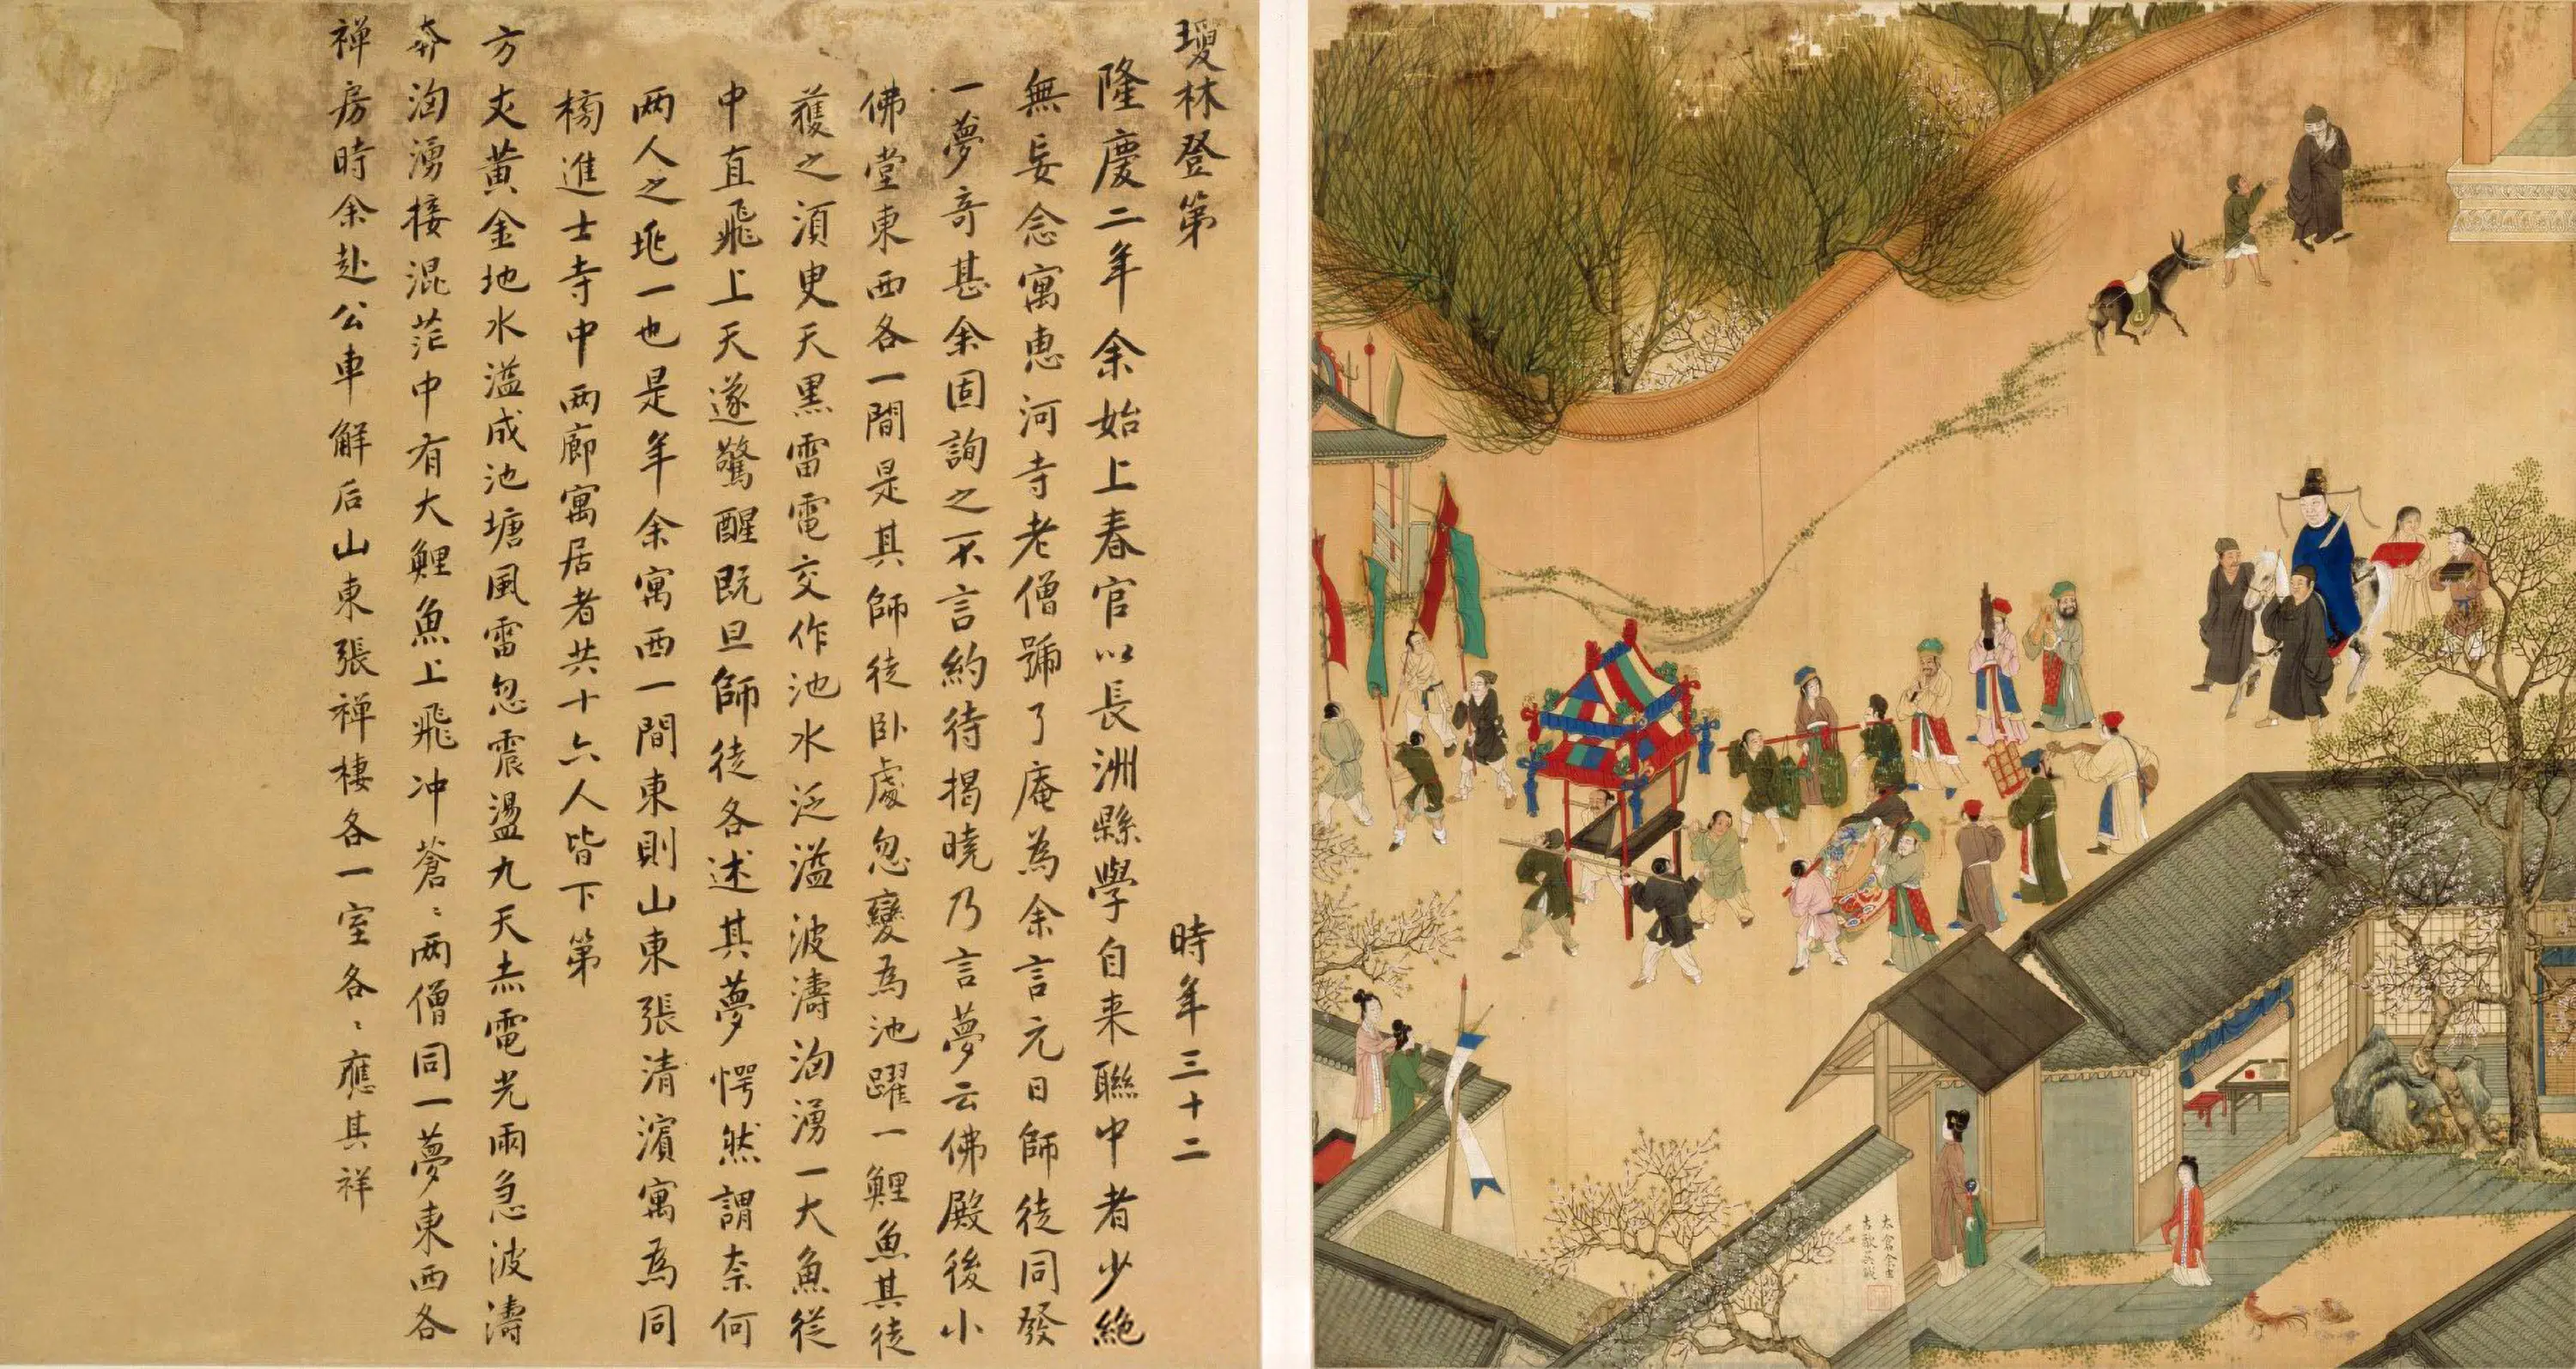 瓊林登第 時年三十二
隆慶二年余始上春官以長洲縣學自来聯中者少絶
無妄念寓恵河寺老僧號了庵為余言元日師徒同發
一夢竒甚余固詢之不言約待揭曉乃言夢云佛殿後小
佛堂東西各一間是其師徒卧處忽變為池躍一鯉魚其徒
獲之湏臾天黒雷電交作池水泛溢波濤洶湧一大魚從
中直飛上天遂驚醒既旦師徒各述其夢愕然謂柰何
两人之兆一也是年余寓西一間東則山東張清濵寓焉同
榜進士寺中两廊寓居者共十六人皆下第
方丈黄金地水溢成池塘風雷忽震盪九天赤電光雨急波濤
奔洶湧接混茫中有大鯉魚上飛冲蒼〻两僧同一夢東西各
禅房時余赴公車解后山東張禅棲各一室各〻應其祥
太倉余士
古歙吳鉞